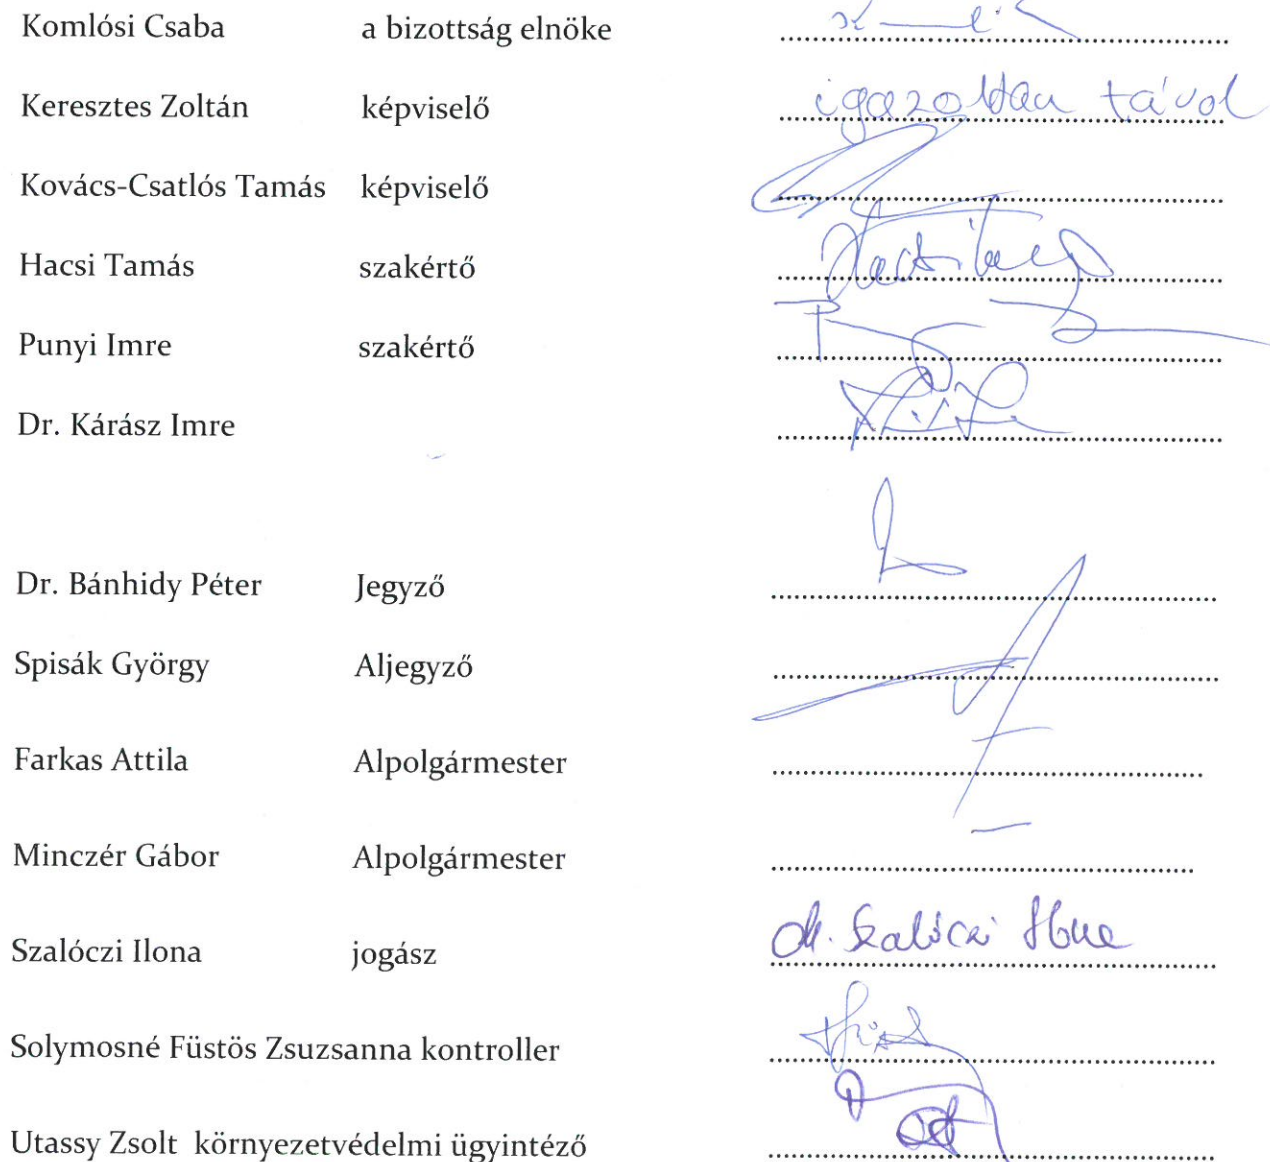 Komlósi Csaba a bizottság elnöke
Keresztes Zoltán képviselő igazoltan távol
Kovács-Csatlós Tamás képviselő
Hacsi Tamás szakértő
Punyi Imre szakértő
Dr. Kárász Imre
Dr. Bánhidy Péter Jegyző
Spisák György Aljegyző
Farkas Attila Alpolgármester
Minczér Gábor Alpolgármester
Szalóczi Ilona jogász dr. Szalóczi Ilona
Solymosné Füstös Zsuzsanna kontroller
Utassy Zsolt környezetvédelmi ügyintéző